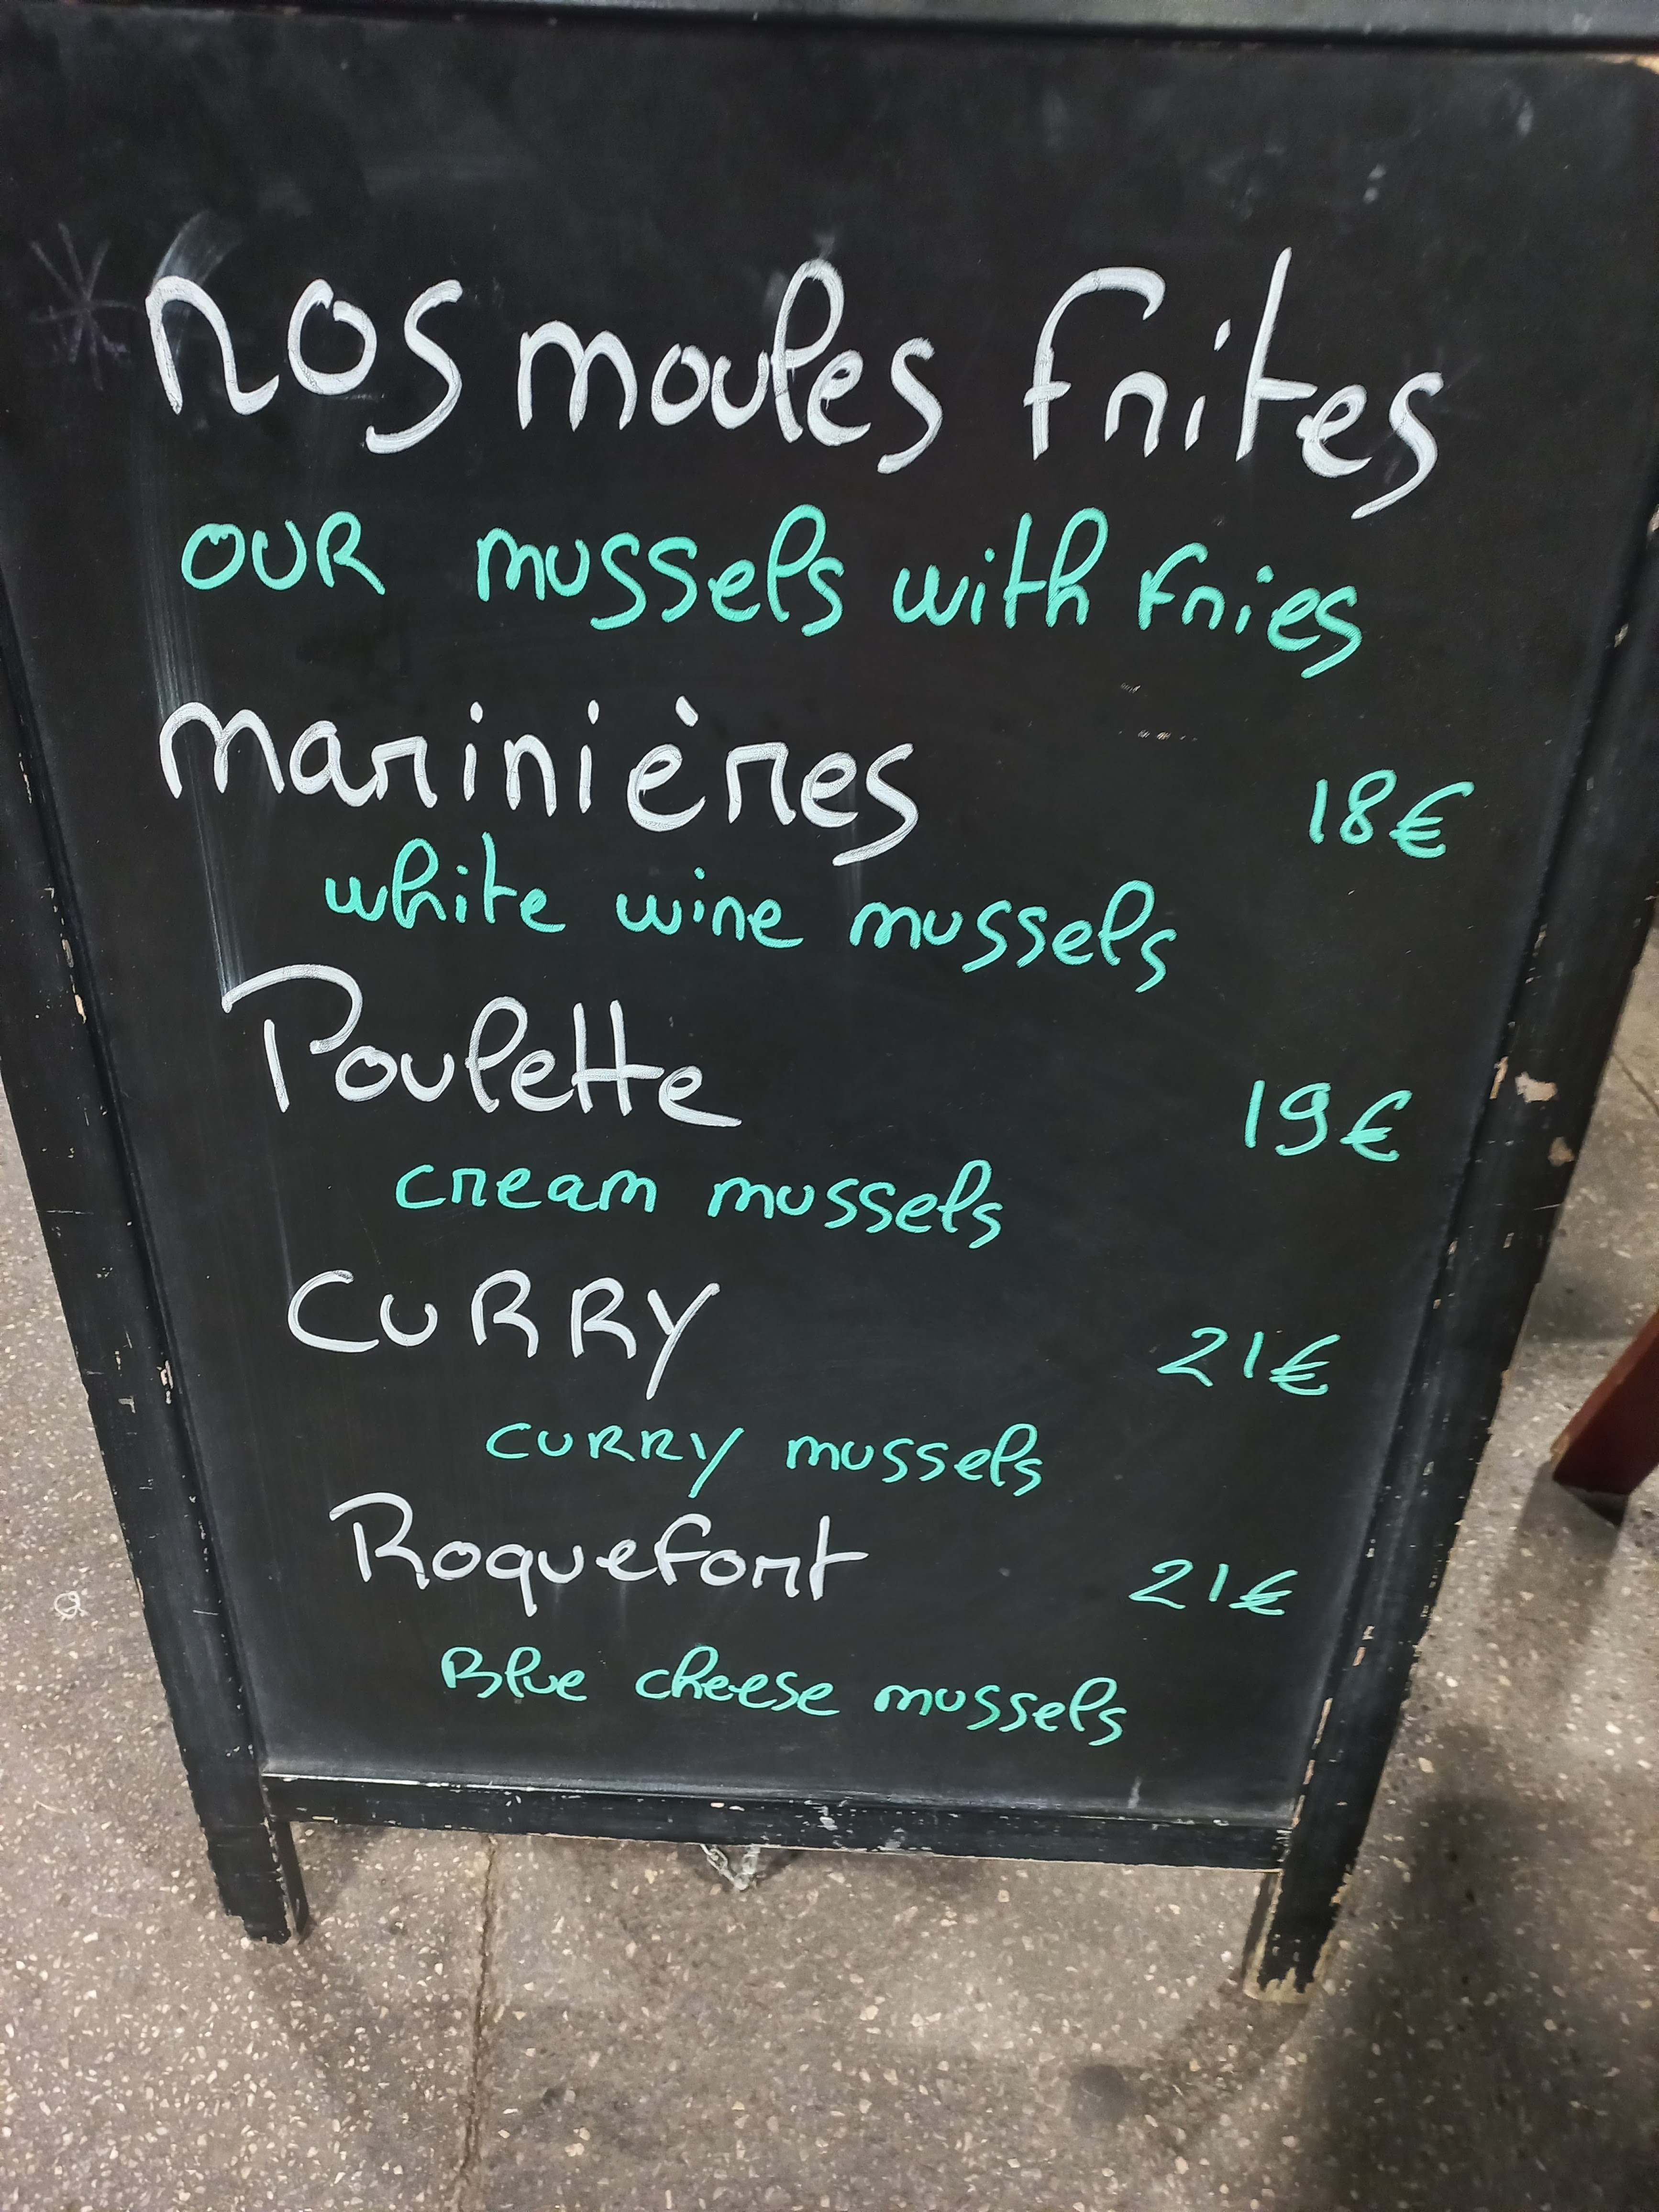 nos moules frites
our mussels with fries
marinières 18€
white wine mussels
Poulette 19€
cream mussels
CURRY 21€
CURRY mussels
Roquefort 21€
Blue cheese mussels